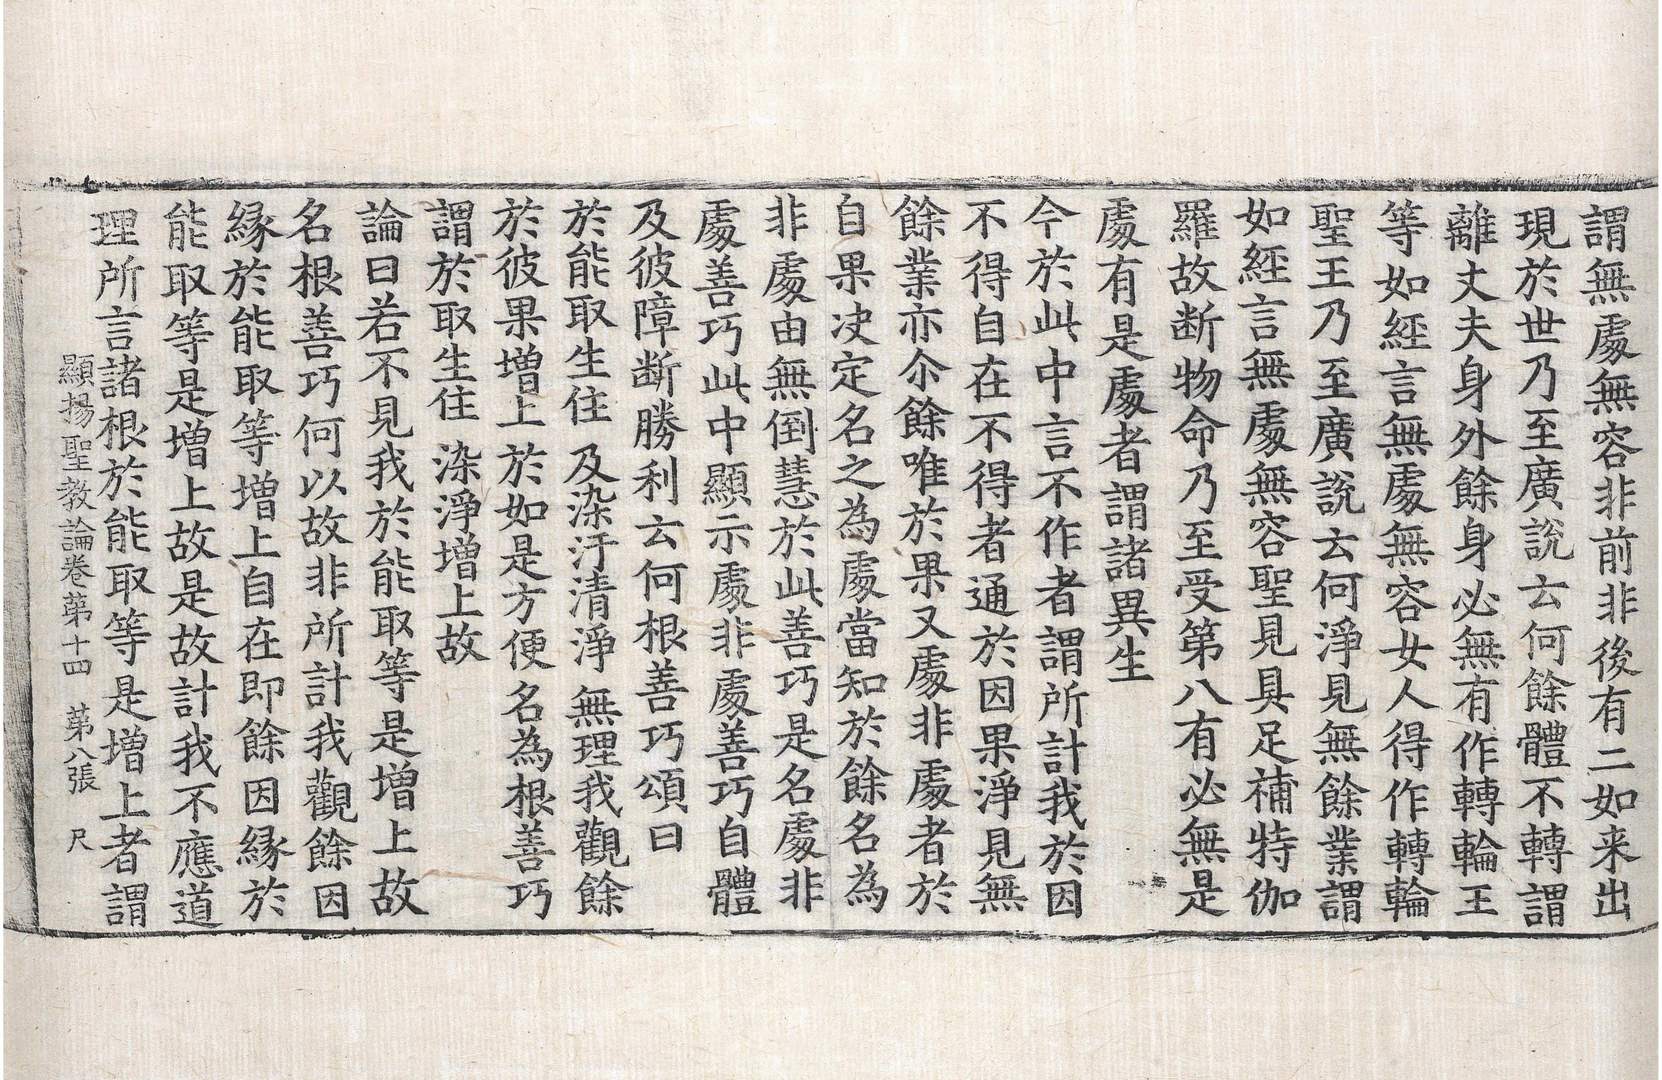 謂無處無容非前非後有二如来出
現於世乃至廣說云何餘體不轉謂
離丈夫身外餘身必無有作轉輪王
等如經言無處無容女人得作轉輪
聖王乃至廣說云何淨見無餘業謂
如經言無處無容聖見具足補特伽
羅故断物命乃至受第八有必無是
處有是處者謂諸異生
今於此中言不作者謂所計我於因
不得自在不得者通於因果淨見無
餘業亦尒餘唯於果又處非處者於
自果决定名之為處當知於餘名為
非處由無倒慧於此善巧是名處非
處善巧此中顯示處非處善巧自體
及彼障断勝利云何根善巧頌曰
於能取生住 及染汙清淨 無理我觀餘
於彼果增上 於如是方便 名為根善巧
謂於取生住 染淨增上故
論曰若不見我於能取等是增上故
名根善巧何以故非所計我觀餘因
縁於能取等增上自在即餘因縁於
能取等是增上故是故計我不應道
理所言諸根於能取等是增上者謂
顯揚聖教論卷苐十四 苐八張 尺